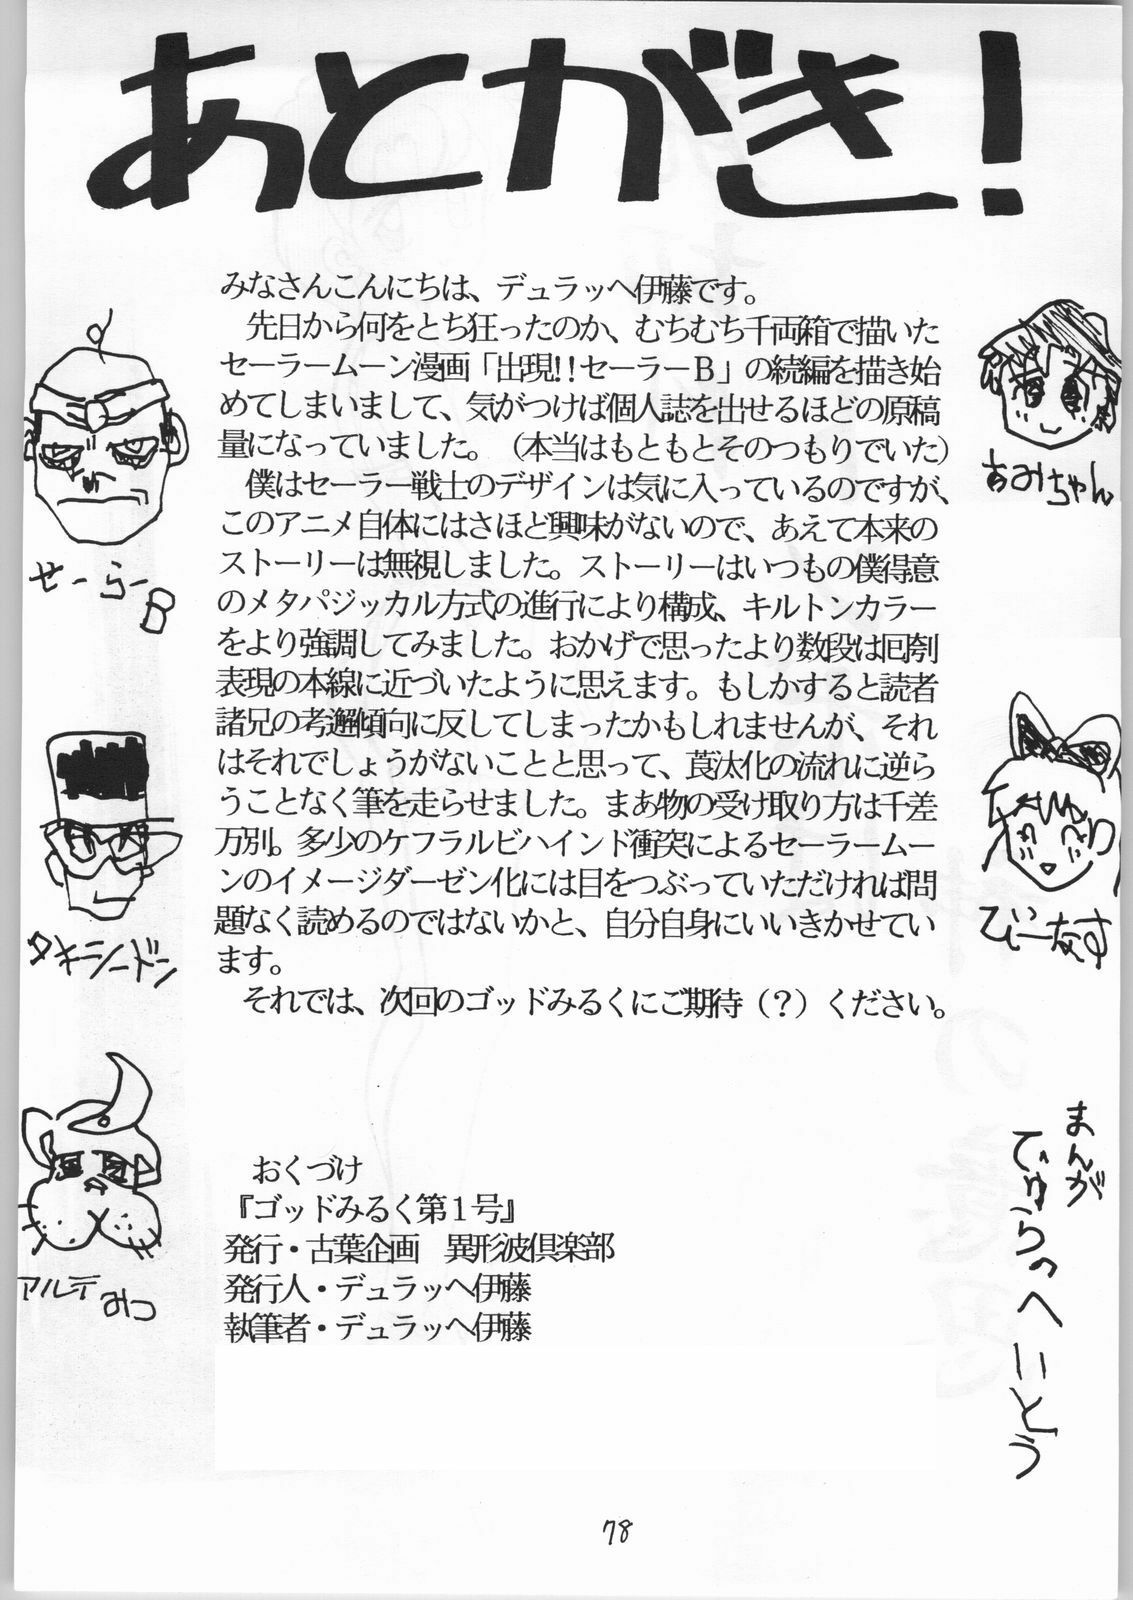 あとがき!
みなさんこんにちは、デュラッヘ伊藤です。
　先日から何をとち狂ったのか、むちむち千両箱で描いた
セーラームーン漫画「出現!!セーラーB」の続編を描き始
めてしまいまして、気がつけば個人誌を出せるほどの原稿
量になっていました。（本当はもともとそのつもりでいた）
　僕はセーラー戦士のデザインは気に入っているのですが、
このアニメ自体にはさほど興味がないので、あえて本来の
ストーリーは無視しました。ストーリーはいつもの僕得意
のメタパジッカル方式の進行により構成、キルトンカラー
をより強調してみました。おかげで思ったより数段は厄剞
表現の本線に近づいたように思えます。もしかすると読者
諸兄の考邂傾向に反してしまったかもしれませんが、それ
はそれでしょうがないことと思って、汰化の流れに逆ら
うことなく筆を走らせました。まあ物の受け取り方は千差
万別。多少のケフラルビハインド衝突によるセーラームー
ンのイメージダーゼン化には目をつぶっていただければ問
題なく読めるのではないかと、自分自身にいいきかせてい
ます。
　それでは、次回のゴッドみるくにご期待（？）ください。
せーらーB
タキシードン
アルテみつ
あみちゃん
びーなす
まんが
でゅらっへいとう
おくづけ
『ゴッドみるく第１号』
発行・古葉企画　異形波倶楽部
発行人・デュラッヘ伊藤
執筆者・デュラッヘ伊藤
78